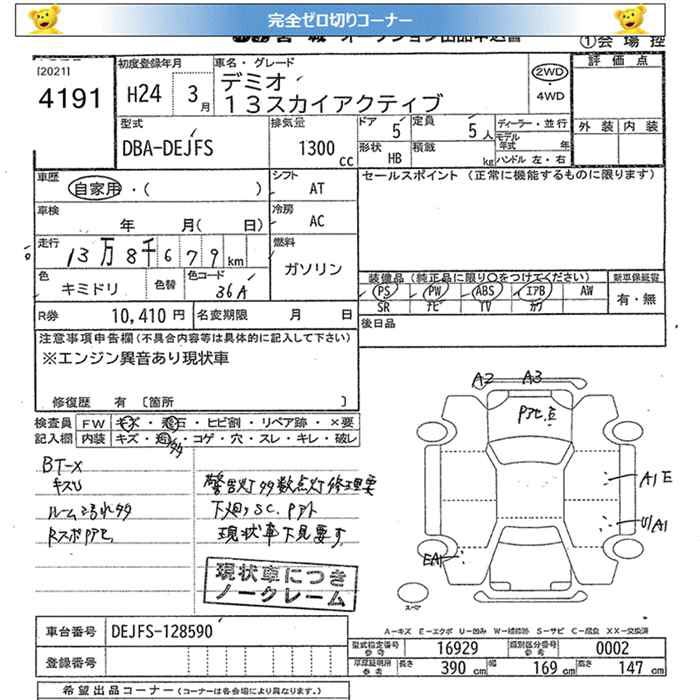 完全ゼロ切りコーナー
オークション出品申込書
①会場控
[2021]
4191
初度登録年月
H24 3月
車名・グレード
デミオ
13スカイアクティブ
2WD
4WD
評価点
外装 内装
型式
DBA-DEJFS
排気量
1300 cc
ドア 5
定員 5人
形状 HB
積載 kg
ディーラー・並行
モデル年式 年
ハンドル 左・右
車歴
自家用・( )
シフト AT
車検
年 月( 日)
冷房 AC
走行
13万8千679km
燃料
ガソリン
色
キミドリ
色替
色コード
36A
R券 10,410円
名変期限 月 日
セールスポイント(正常に機能するものに限ります)
装備品(純正品に限り○をつけてください)
新車保証書
PS PW ABS エアB AW
SR ナビ TV カワ
有・無
後日品
注意事項申告欄(不具合内容等は具体的に記入して下さい)
※エンジン異音あり現状車
修復歴 有 〔箇所 〕
検査員記入欄
FW キズ・飛石・ヒビ割・リペア跡・×要
内装 キズ・汚・コゲ・穴・スレ・キレ・破レ
BT-X
キズU
ルームよごれタタ
警告灯タタ数点灯修理要
下廻りSC.Pアト
現状車下見要す
現状車につき
ノークレーム
A2 A3
A1E
U/A1
EA1
スペーマー
A-キズ E-エクボ U-凹み W-補修跡 S-サビ C-腐食 XX-交換済
車台番号 DEJFS-128590
登録番号
型式指定番号 参考 16929
類別区分番号 参考 0002
車庫証明用 参考 長さ 390cm 幅 169cm 高さ 147cm
希望出品コーナー(コーナーは各会場により異なります。)